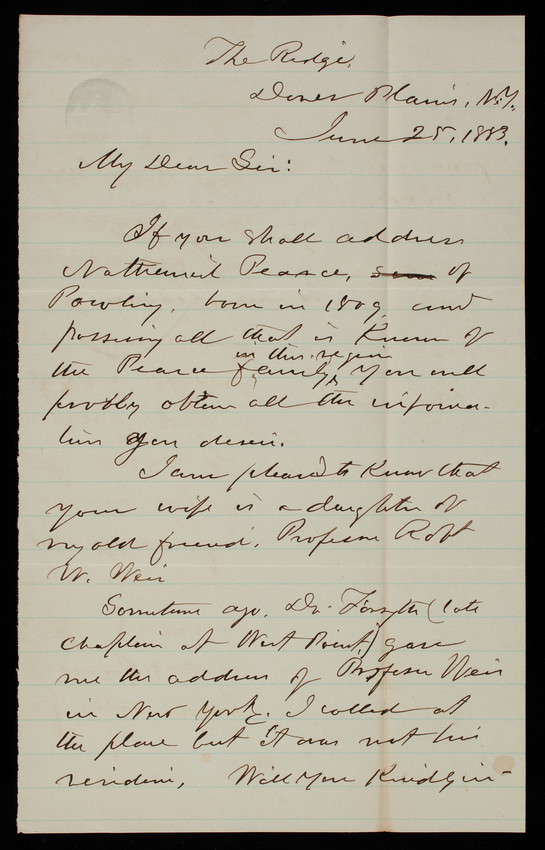 The Ridge,
Dover Plains, N.Y.
June 25, 1883.
My Dear Sir:
If you shall address
Nathaniel Pearce, of
Pawling, born in 1809 and
possessing all that is known of
in this region
the Pearce family, you will
probbly obtain all the informa-
tion you desire.
I am pleased to know that
your wife is a daughter of
my old friend, Professor Robt
W. Weir
Sometime ago, Dr. Forsyth (late
chaplain at West Point) gave
me the address of Professor Weir
in New York. I called at
the place but it was not his
residence, Will you kindly in-